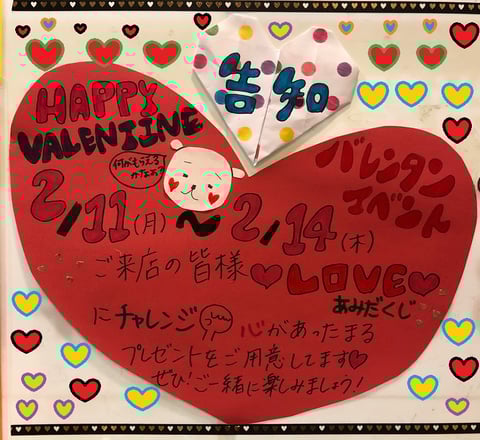 告知
HAPPY
VALENTINE
バレンタン
イベント
何がもらえる
かなぁ?
2/11(月)〜2/14(木)
ご来店の皆様♥LOVE♥
あみだくじ
にチャレンジ 心があったまる
プレゼントをご用意してます♥
ぜひ!ご一緒に楽しみましょう!